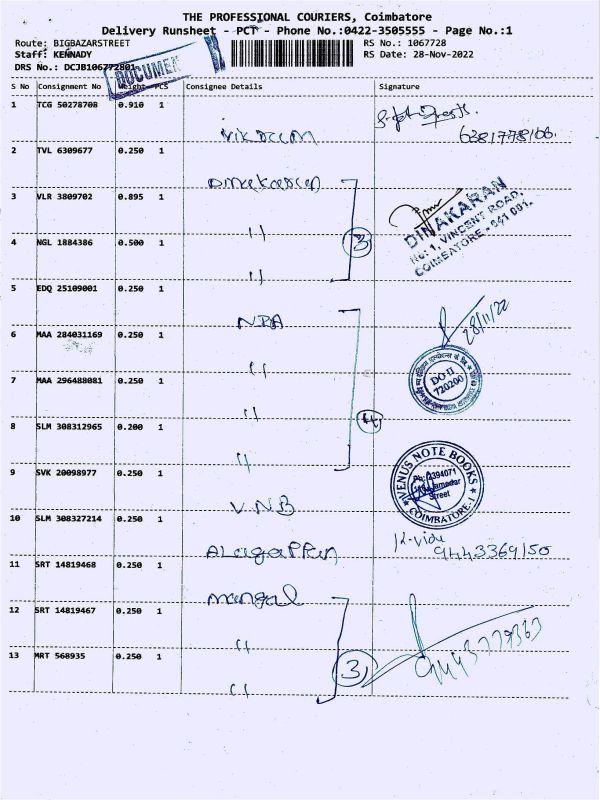 THE PROFESSIONAL COURIERS, Coimbatore
Delivery Runsheet - PCT - Phone No.:0422-3505555 - Page No.:1
Route: BIGBAZARSTREET RS No.: 1067728
Staff: KENNADY RS Date: 28-Nov-2022
DRS No.: DCJB106772801
DOCUMEN
S No Consignment No Weight PCS Consignee Details Signature
1 TCG 50278708 0.910 1
6381778106
2 TVL 6309677 0.250 1
Dinakaran
3 VLR 3809702 0.895 1 "
3
DINAKARAN
No: 1, VINCENT ROAD,
COIMBATORE - 641 001.
4 NGL 1884386 0.500 1 "
5 EDQ 25109001 0.250 1
NIA
28/11/22
6 MAA 284031169 0.250 1 "
DO-II
720200
7 MAA 296488081 0.250 1 "
4
8 SLM 308312965 0.200 1 "
9 SVK 20098977 0.250 1
VENUS NOTE BOOKS
Ph: 2394071
Street
COIMBATORE-1
V.N.B
10 SLM 308327214 0.250 1
Alagappan
9443369150
11 SRT 14819468 0.250 1
mangal
12 SRT 14819467 0.250 1 "
13 MRT 568935 0.250 1 "
3